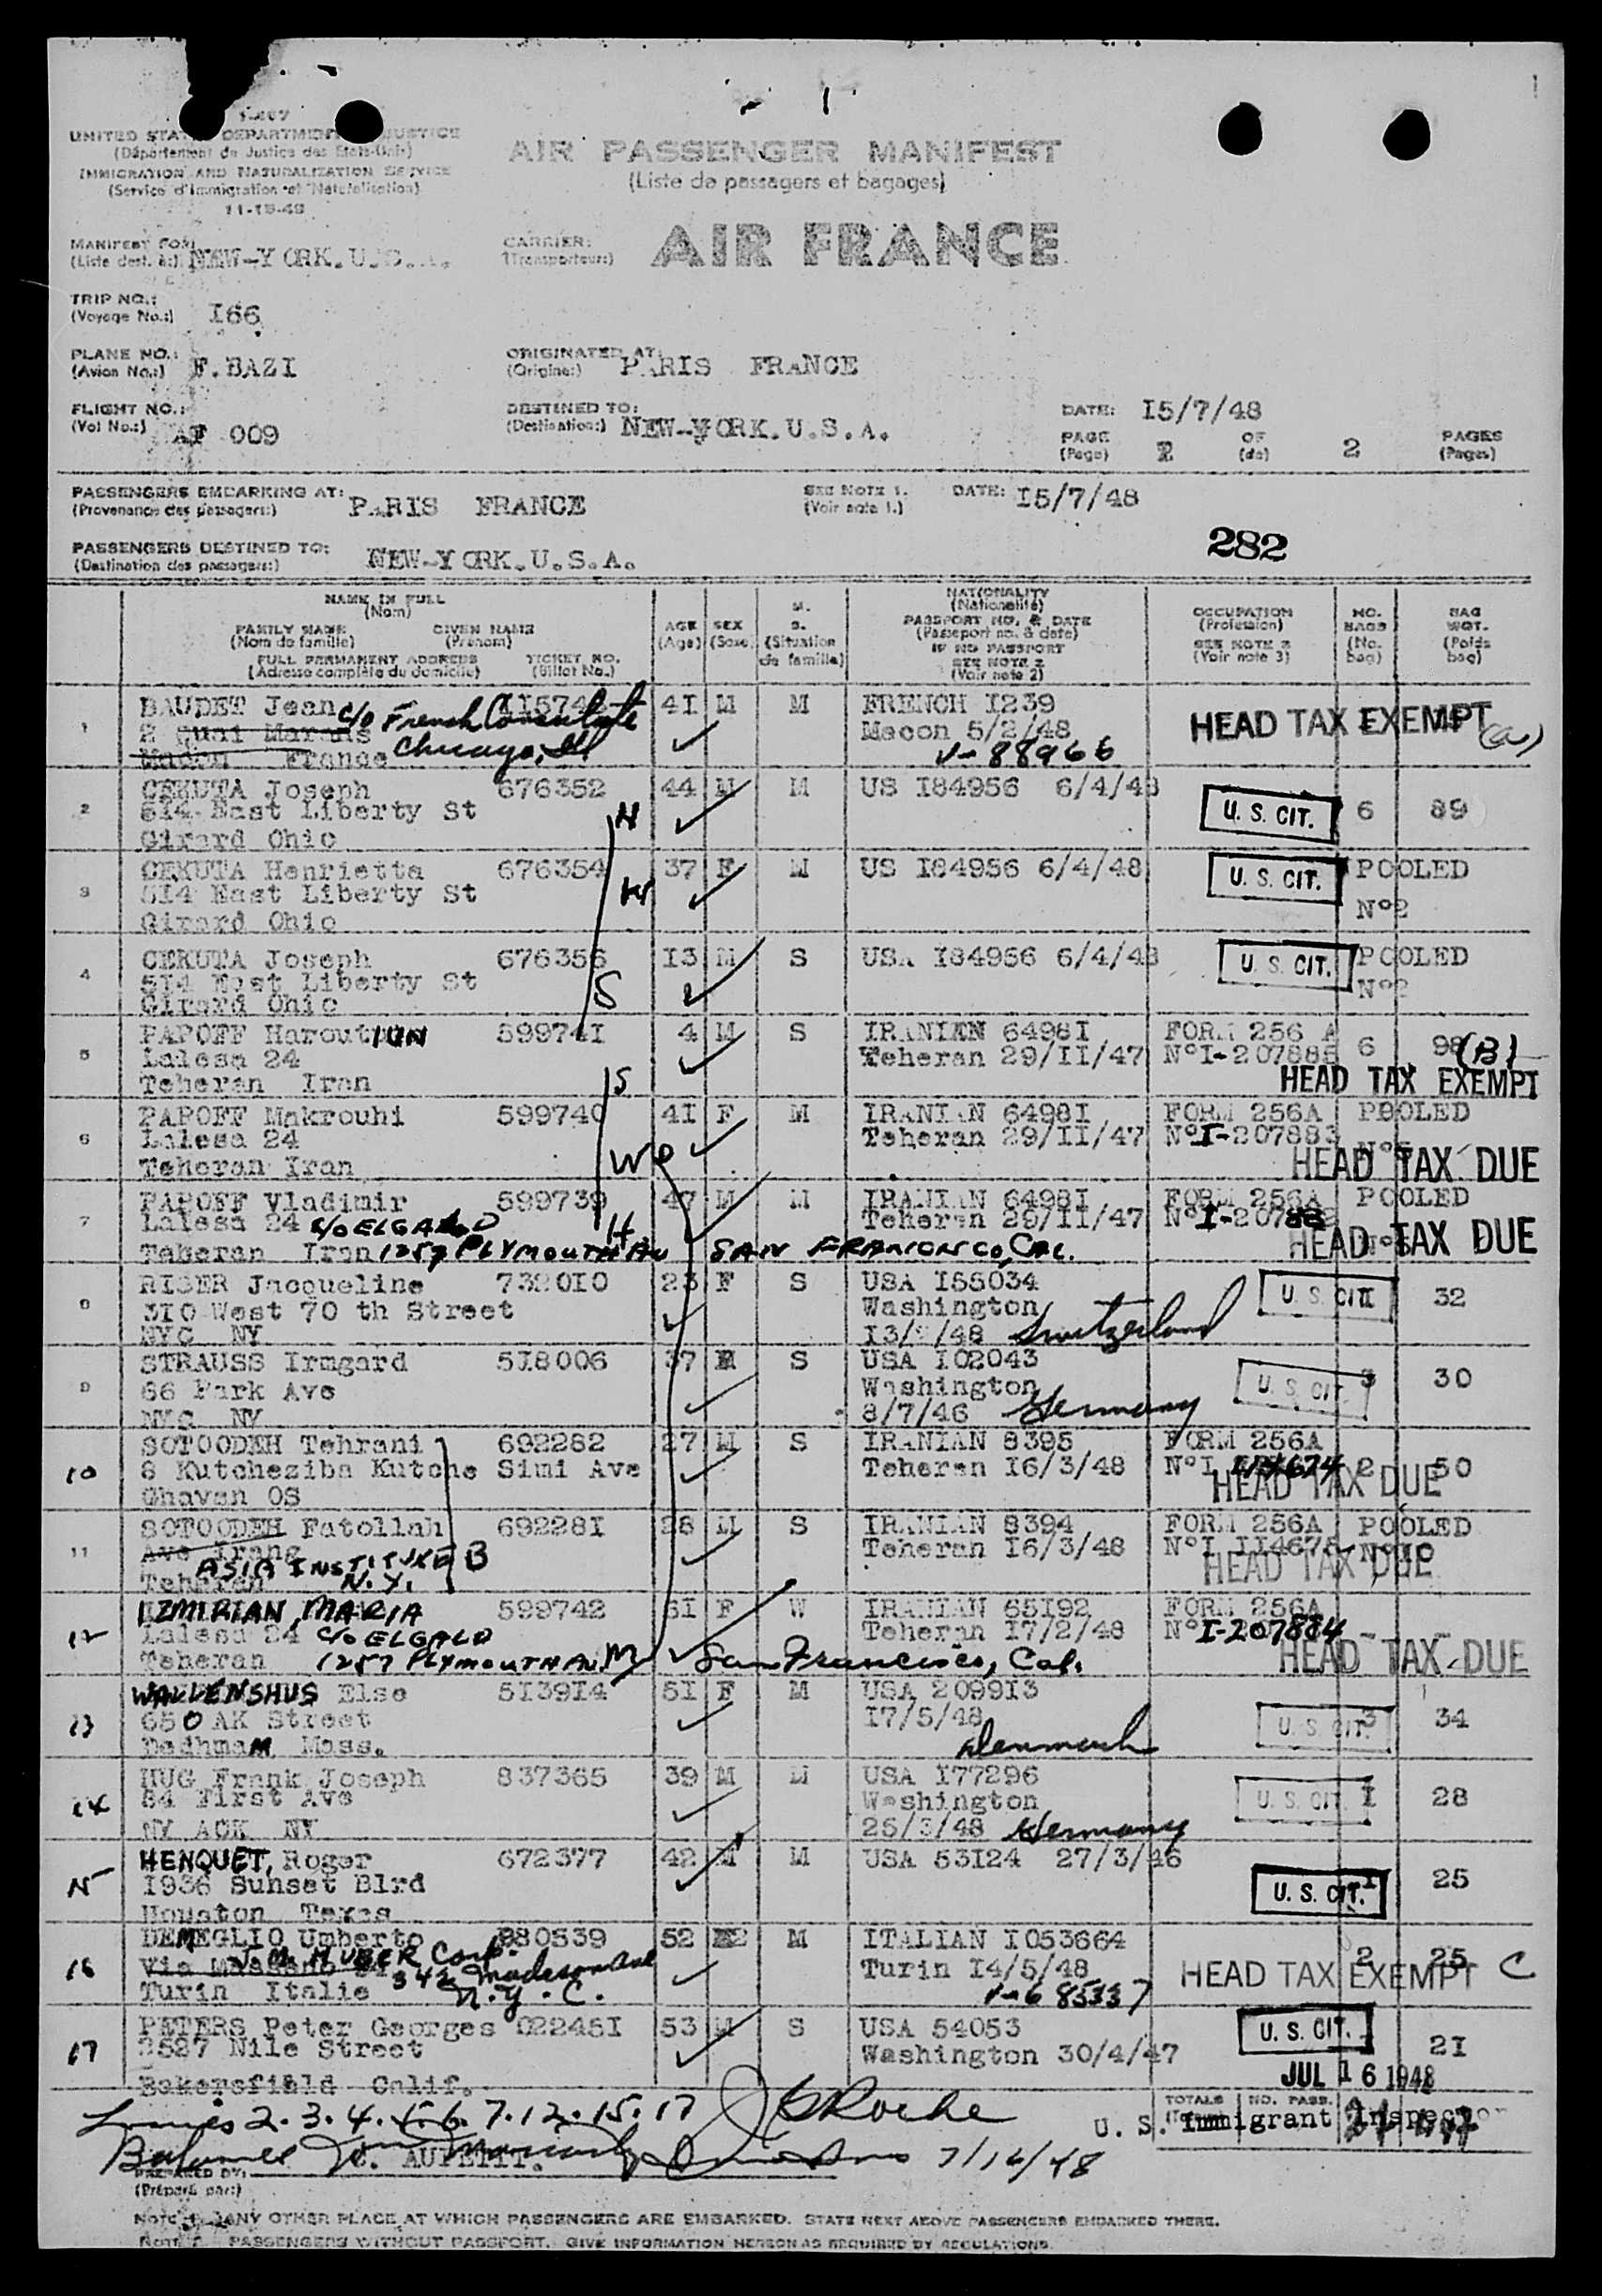 UNITED STATES DEPARTMENT JUSTICE
(Département de Justice des Etats-Unis)
IMMIGRATION AND NATURALIZATION SERVICE
(Service d'Immigration et Naturalisation)
AIR PASSENGER MANIFEST
(Liste de passagers et bagages)
MANIFEST FOR: NEW-YORK.U.S.A.
(Liste dest. à:)
CARRIER: AIR FRANCE
(Transporteur:)
TRIP NO.: I66
(Voyage No.:)
PLANE NO.: F.BAZI
(Avion No.:)
ORIGINATED AT: PARIS FRANCE
(Origine:)
FLIGHT NO.: AF 009
(Vol No.:)
DESTINED TO: NEW-YORK.U.S.A.
(Destination:)
DATE: I5/7/48
PAGE 2 OF 2 PAGES
(Page) (de) (Pages)
PASSENGERS EMBARKING AT: PARIS FRANCE
(Provenance des passagers:)
SEE NOTE 1. DATE: I5/7/48
(Voir note 1.)
282
PASSENGERS DESTINED TO: NEW-YORK.U.S.A.
(Destination des passagers:)
NAME IN FULL
(Nom)
FAMILY NAME GIVEN NAME
(Nom de famille) (Prénom)
FULL PERMANENT ADDRESS TICKET NO.
(Adresse complète du domicile) (Billet No.)
AGE SEX M. S.
(Age) (Sexe) (Situation de famille)
NATIONALITY
(Nationalité)
PASSPORT NO. & DATE
(Passeport no. & date)
IF NO PASSPORT
SEE NOTE 2
(Voir note 2)
OCCUPATION
(Profession)
SEE NOTE 3
(Voir note 3)
NO. BAGS
(No. bag)
BAG WGT.
(Poids bag)
1 BAUDET Jean 4I M M FRENCH I239
c/o French Consulate
2 Quai Marans Macon 5/2/48
Chicago, Ill
Macon France V-88966
HEAD TAX EXEMPT (a)
2 CEKUTA Joseph 676352 44 M M US I84956 6/4/48 U. S. CIT. 6 89
514 East Liberty St H
Girard Ohio
3 CEKUTA Henrietta 676354 37 F M US I84956 6/4/48 U. S. CIT. POOLED
514 East Liberty St W N°2
Girard Ohio
4 CEKUTA Joseph 676356 I3 M S USA I84956 6/4/48 U. S. CIT. POOLED
514 East Liberty St S N°2
Girard Ohio
5 PAPOFF Haroutiun 59974I 4 M S IRANIEN 6498I FORM 256 A 6 98 (B)
Lalesa 24 Teheran 29/II/47 N°I-207885
Teheran Iran S HEAD TAX EXEMPT
6 PAPOFF Makrouhi 599740 4I F M IRANIAN 6498I FORM 256A POOLED
Lalesa 24 Teheran 29/II/47 N°I-207883
Teheran Iran HEAD TAX DUE
7 PAPOFF Vladimir 599739 47 M M IRANIAN 6498I FORM 256A POOLED
Lalesa 24 c/o ELGALD H Teheran 29/II/47
Teheran Iran 1257 PLYMOUTH AV SAN FRANCISCO, CAL. HEAD TAX DUE
8 RISER Jacqueline 7320I0 23 F S USA I55034 U. S. CIT. 32
3I0 West 70 th Street Washington
NYC NY Switzerland
9 STRAUSS Irmgard 5I8006 37 S USA I02043 U. S. CIT. 3 30
66 Park Ave Washington
NYC NY 8/7/46 Germany
10 SOTOODEH Tehrani 692282 27 M S IRANIAN 8395 FORM 256A
8 Kutcheziba Kutche Simi Ave Teheran I6/3/48 2 50
Ghavan OS HEAD TAX DUE
11 SOTOODEH Fatollah 69228I 28 M S IRANIAN 8394 FORM 256A POOLED
Ave Irang Teheran I6/3/48 N°I0
Teheran ASIA INSTITUTE B
N.Y. HEAD TAX DUE
12 IZMIRIAN, MARIA 599742 6I F W IRANIAN 65I92 FORM 256A
Lalesa 24 c/o ELGALD Teheran I7/2/48 N°I-207884
Teheran 1257 PLYMOUTH AV M San Francisco, Cal. HEAD TAX DUE
13 WALLENSHUS Else 5I39I4 5I F M USA 2099I3 U. S. CIT. 3 34
65 OAK Street I7/5/48
Dedham Mass. Denmark
14 HUG Frank Joseph 837365 39 M M USA I77296 U. S. CIT. I 28
84 First Ave Washington
NY ACK NY 26/3/48 Germany
15 HENQUET, Roger 672377 42 M M USA 53I24 27/3/46 U. S. CIT. 25
I936 Sunset Blrd
Houston Texas
16 DEMEGLIO Umberto 52 M ITALIAN I053664 2 25
J. M. HUBER Corp.
342 Madison Ave Turin I4/5/48
Turin Italie N.Y.C. V-685337 HEAD TAX EXEMPT C
17 PETERS Peter Georges 02245I 53 M S USA 54053 U. S. CIT. 2I
2527 Nile Street Washington 30/4/47
Bakersfield Calif. JUL 16 1948
2. 3. 4. 5. 6. 7. 12. 15. 17 Roche
TOTALS NO. PASS.
U. S. Immigrant Inspector
Balance C. AUPETIT. 7/16/48
PREPARED BY:
(Préparé par:)
Note 1. ANY OTHER PLACE AT WHICH PASSENGERS ARE EMBARKED. STATE NEXT ABOVE PASSENGERS EMBARKED THERE.
Note 2. PASSENGERS WITHOUT PASSPORT. GIVE INFORMATION HEREON AS REQUIRED BY REGULATIONS.